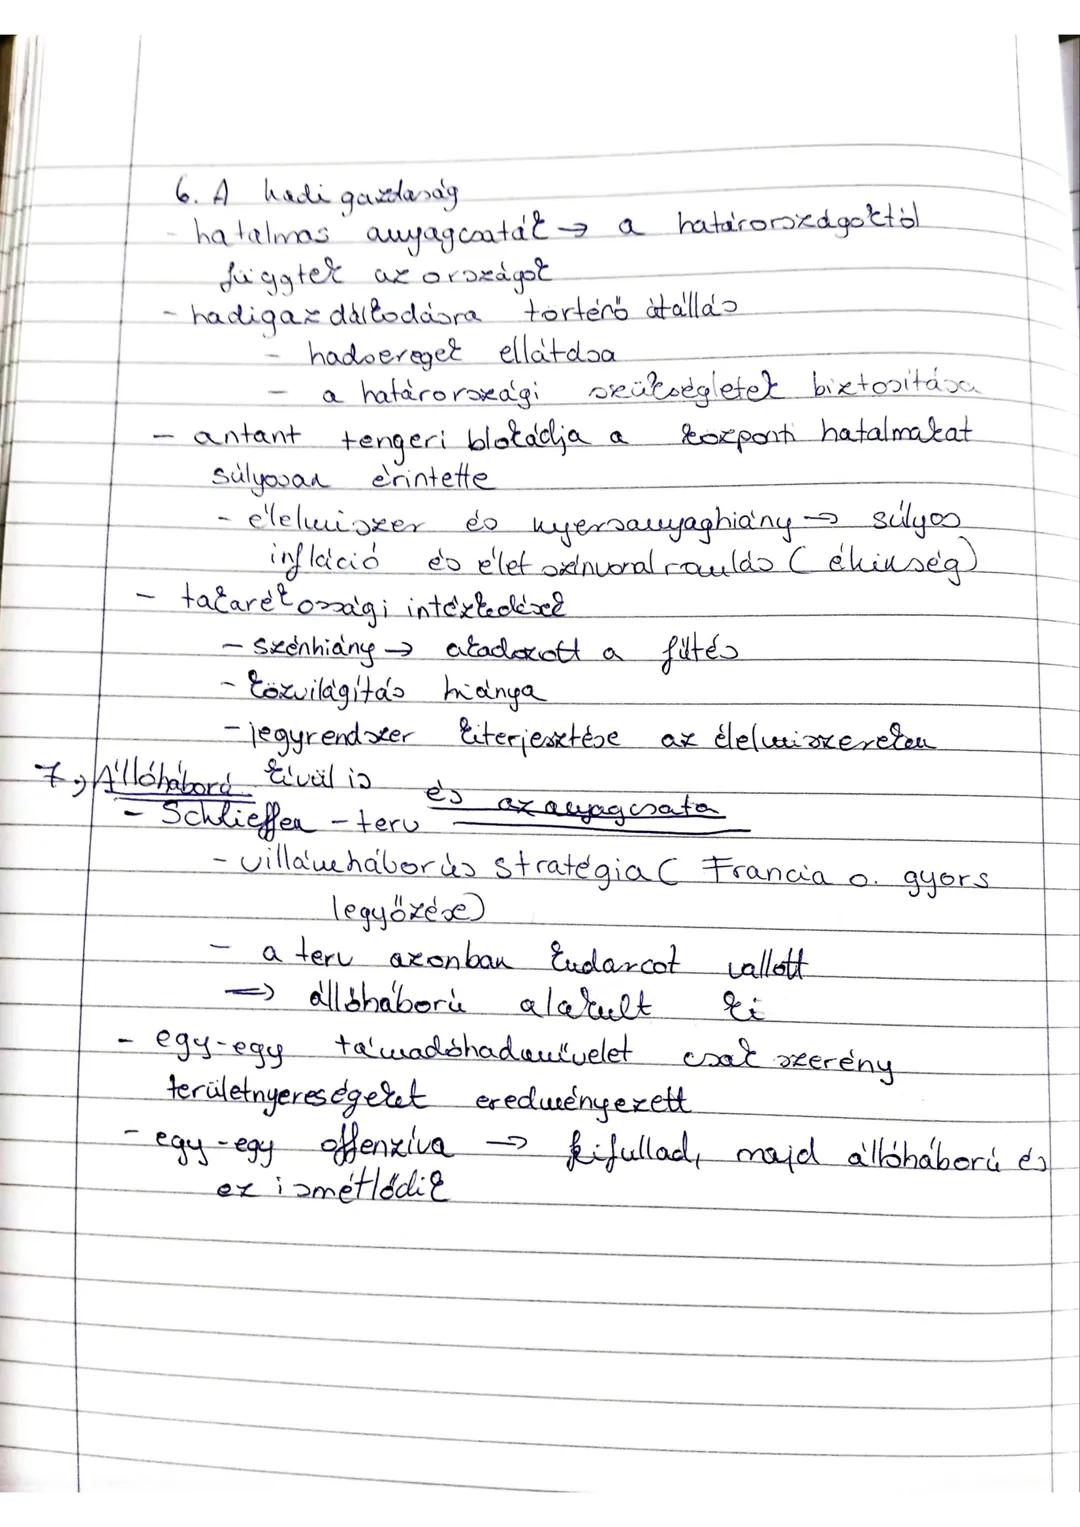 6. A hadi gazdaság
- hatalmas anyagcsaták → a határországoktól
függtek az országok
- hadigazdálkodásra történő átállás
- hadsereget ellátása
- a határországi szükségletek biztosítása
- antant tengeri blokádja a központi hatalmakat
súlyosan érintette
- élelmiszer és nyersanyaghiány → súlyos
infláció és élet szinvonalromlás ( éhinség)
- takarékossági intézkedések
- szénhiány → akadozott a fűtés
- közvilágítás hiánya
- jegyrendszer kiterjesztése az élelmiszereken
kívül is
7., Állóháború és az anyagcsata
- Schlieffen - terv
- villámháborús stratégia ( Francia o. gyors
legyőzése)
- a terv azonban kudarcot vallott
=> állóháború alakult ki
- egy-egy támadóhadművelet csak szerény
területnyereségeket eredményezett
- egy-egy offenzíva → kifullad, majd állóháború és
ez ismétlődik